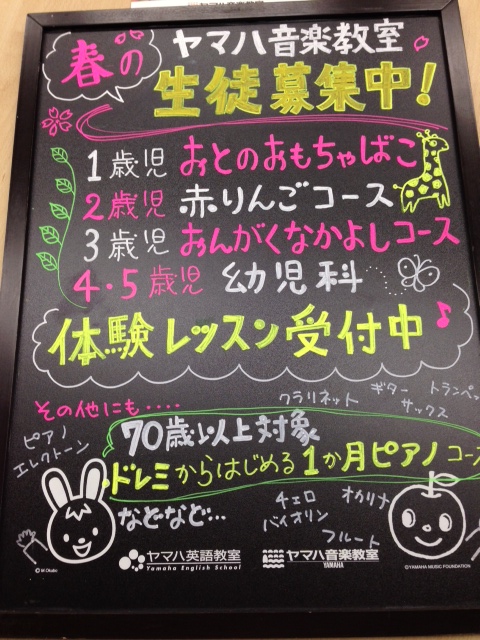 春の ヤマハ音楽教室
生徒募集中!
1歳児 おとのおもちゃばこ
2歳児 赤りんごコース
3歳児 おんがくなかよしコース
4・5歳児 幼児科
体験レッスン受付中♪
その他にも・・・・
クラリネット ギター トランペッ
サックス
ピアノ
エレクトーン
70歳以上対象
ドレミからはじめる1か月ピアノコース
などなど…
チェロ オカリナ
バイオリン
フルート
ヤマハ英語教室
Yamaha English School
ヤマハ音楽教室
YAMAHA
©M.Okubo
©YAMAHA MUSIC FOUNDATION